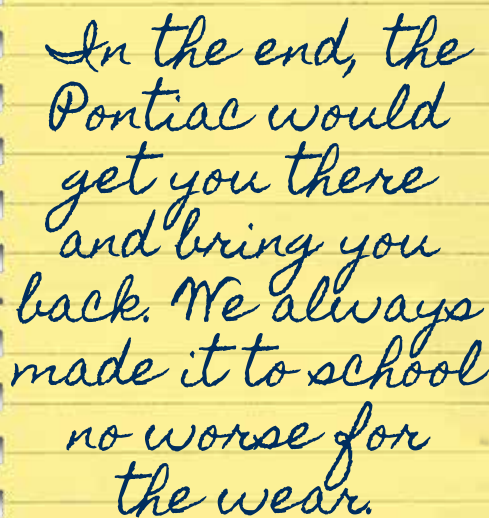 In the end, the
Pontiac would
get you there
and bring you
back. We always
made it to school
no worse for
the wear.